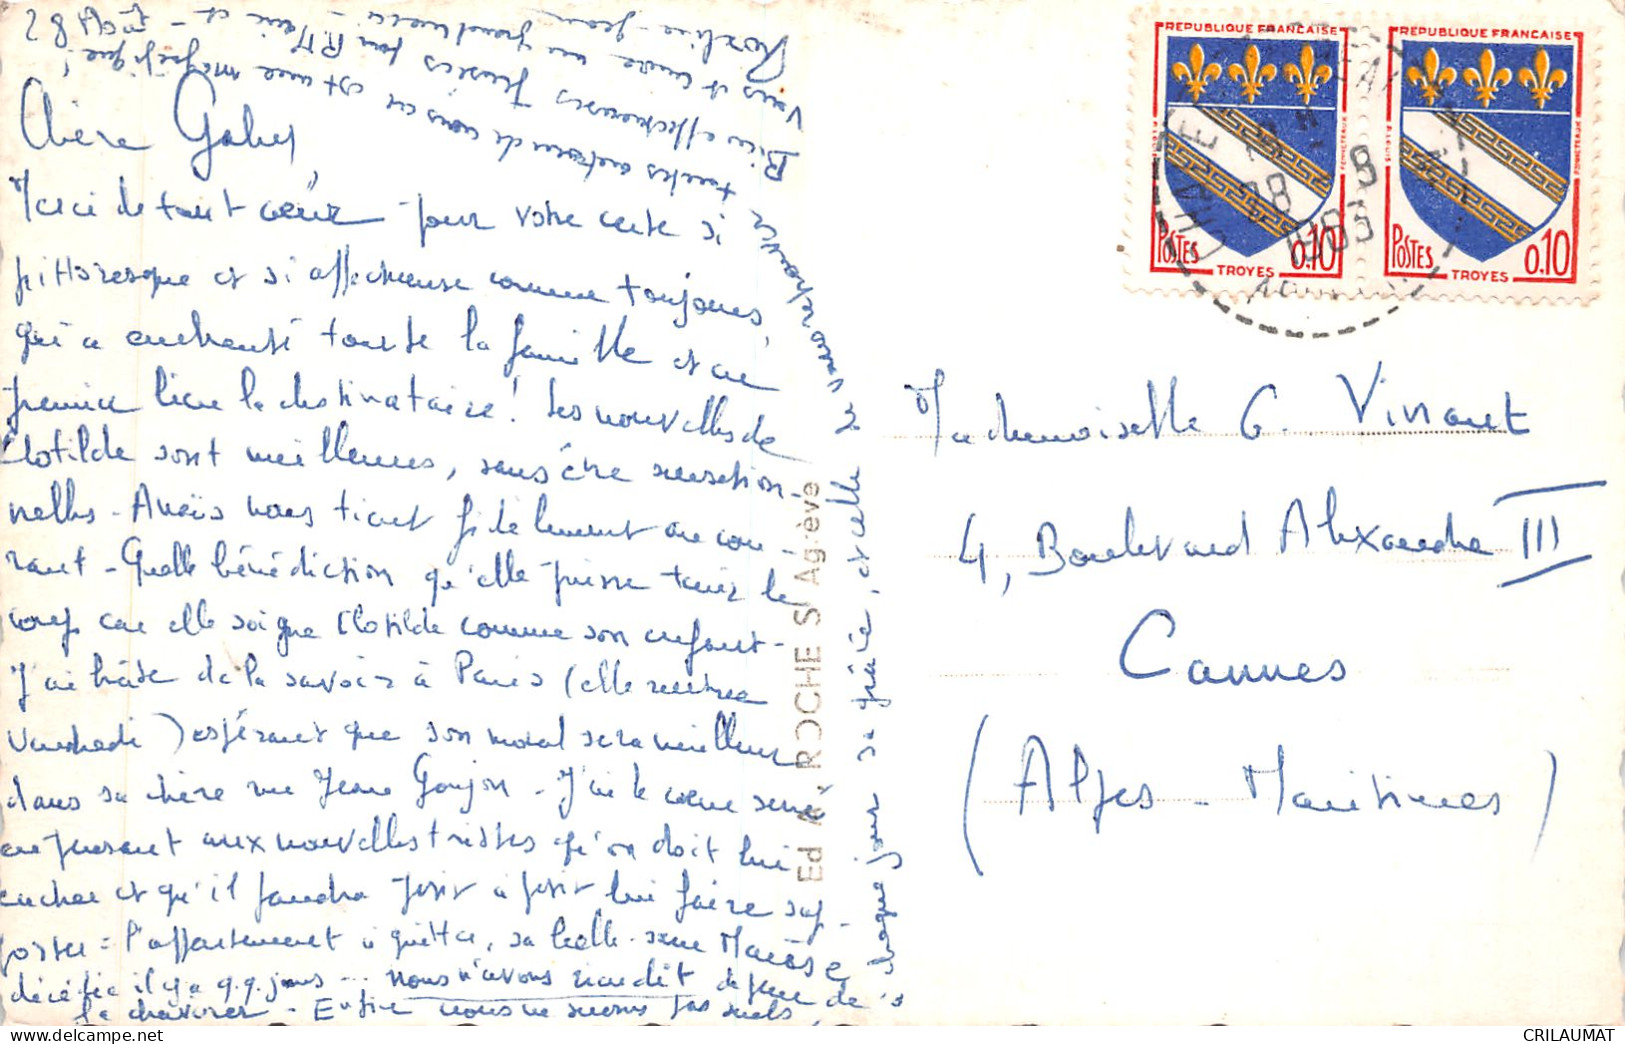 Chère Gaby,
Merci de tout cœur pour votre carte si
pittoresque et si affectueuse comme toujours,
qui a enchanté toute la famille et en
premier lieu la destinataire! Les nouvelles de
Clotilde sont meilleures, sans être sensation-
nelles - Anaïs nous tient fidèlement au cou-
rant - Quelle bénédiction qu'elle puisse tenir le
coup car elle soigne Clotilde comme son enfant -
J'ai hâte de la savoir à Paris (elle rentre
Vendredi) espérant que son moral sera meilleur
dans sa chère rue Jean Goujon - J'ai le cœur serré
en pensant aux nouvelles tristes qu'on doit lui
cacher et qu'il faudra petit à petit lui faire sup-
porter = l'appartement à quitter, sa belle-sœur
décédée il y a q.q. jours ... nous n'avons rien dit de peur de
la chavirer - Enfin nous ne sommes pas seuls,
chaque jour sa grâce, et celle
toutes autour de nous en est une magnifique!
Bien affectueuses pensées
Vous et encore un grand merci -
Ed. ROCHE St Agrève
REPUBLIQUE FRANÇAISE
POSTES
TROYES
0.10
REPUBLIQUE FRANÇAISE
POSTES
TROYES
0.10
28 8
1963
Mademoiselle G. Vinant
4, Boulevard Alexandre III
Cannes
(Alpes-Maritimes)
CRILAUMAT